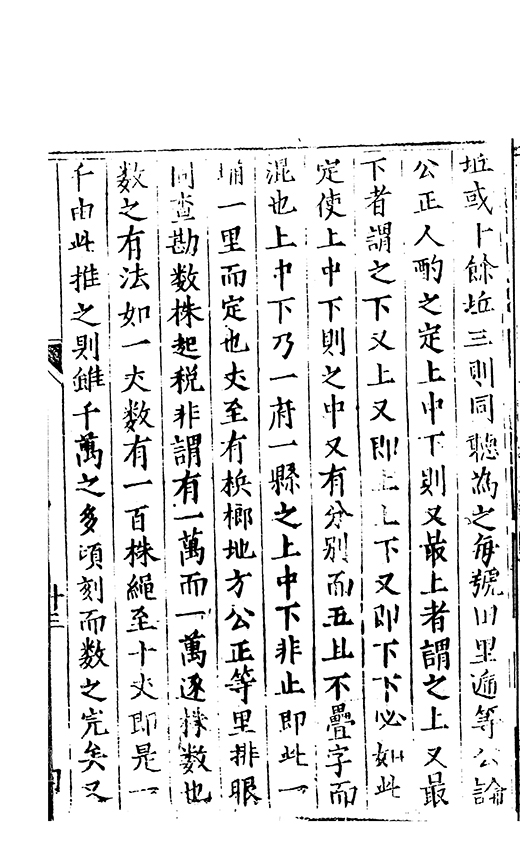 坵或十餘坵三則同聽為之每號田里遞等公論
公正人酌之定上中下則又最上者謂之上又最
下者謂之下又上又即上上下又即下下必如此
定使上中下則之中又有分別而丑且不疊字而
混也上中下乃一府一縣之上中下非止即此一
一里而定也丈至有檳榔地方公正等里排眼
同查勘數株起稅非謂有一萬而一萬逐株數也
數之有法如一丈數有一百株繩至十丈即是一
千由此推之則雖千萬之多頃刻而數之完矣又
十三